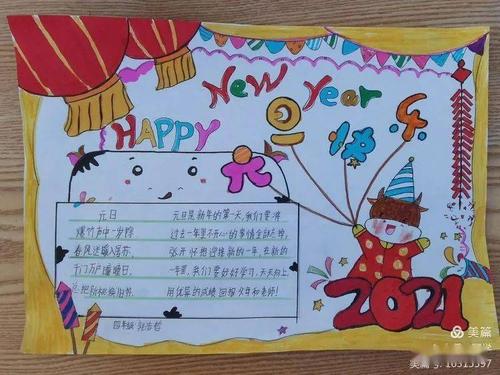 New Year
HAPPY
元旦快乐
元日
爆竹声中一岁除
春风送暖入屠苏,
千门万户曈曈日,
总把新桃换旧符.
元旦是新年的第一天,我们要将
过去一年里不开心的事情全部忘掉,
张开怀抱迎接新的一年,在新的
一年里,我们要好好学习,天天向上,
用优异的成绩回报父母和老师!
四年级
2021
美篇
美篇号:10315397